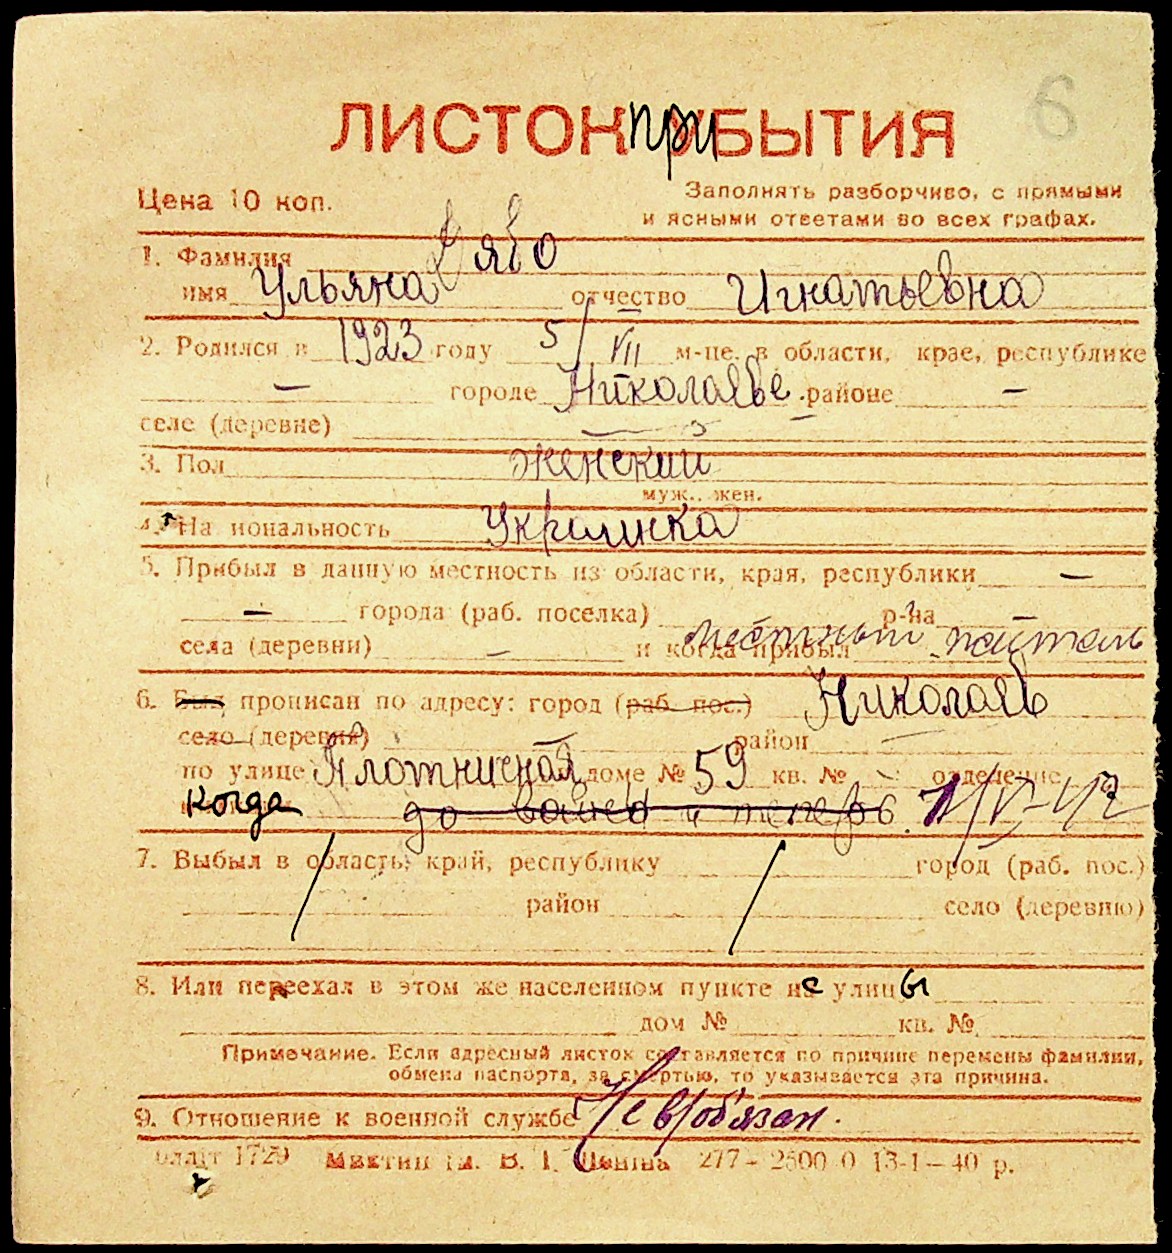 6
ЛИСТОК при БЫТИЯ
Цена 10 коп.
Заполнять разборчиво, с прямыми
и ясными ответами во всех графах.
1. Фамилия
имя Ульяна отчество Игнатьевна
2. Родился в 1923 году 5/VII м-це, в области, крае, республике
— городе Николаеве районе —
селе (деревне) —
3. Пол женский
муж., жен.
4. На иональность Украинка
5. Прибыл в данную местность из области, края, республики —
— города (раб. поселка) р-на
села (деревни) — и когда прибыл местный житель
6. Был прописан по адресу: город (раб. пос.) Николаев
село (деревня) — район
по улице Плотничная доме № 59 кв. № отделение
когда до войны и теперь
7. Выбыл в область, край, республику город (раб. пос.)
район село (деревню)
8. Или переехал в этом же населенном пункте с улицы
дом № кв. №
Примечание. Если адресный листок составляется по причине перемены фамилии,
обмена паспорта, за смертью, то указывается эта причина.
9. Отношение к военной службе Не в/обязан.
1729 В. І. Леніна 277 - 2500 0 13-1-40 р.